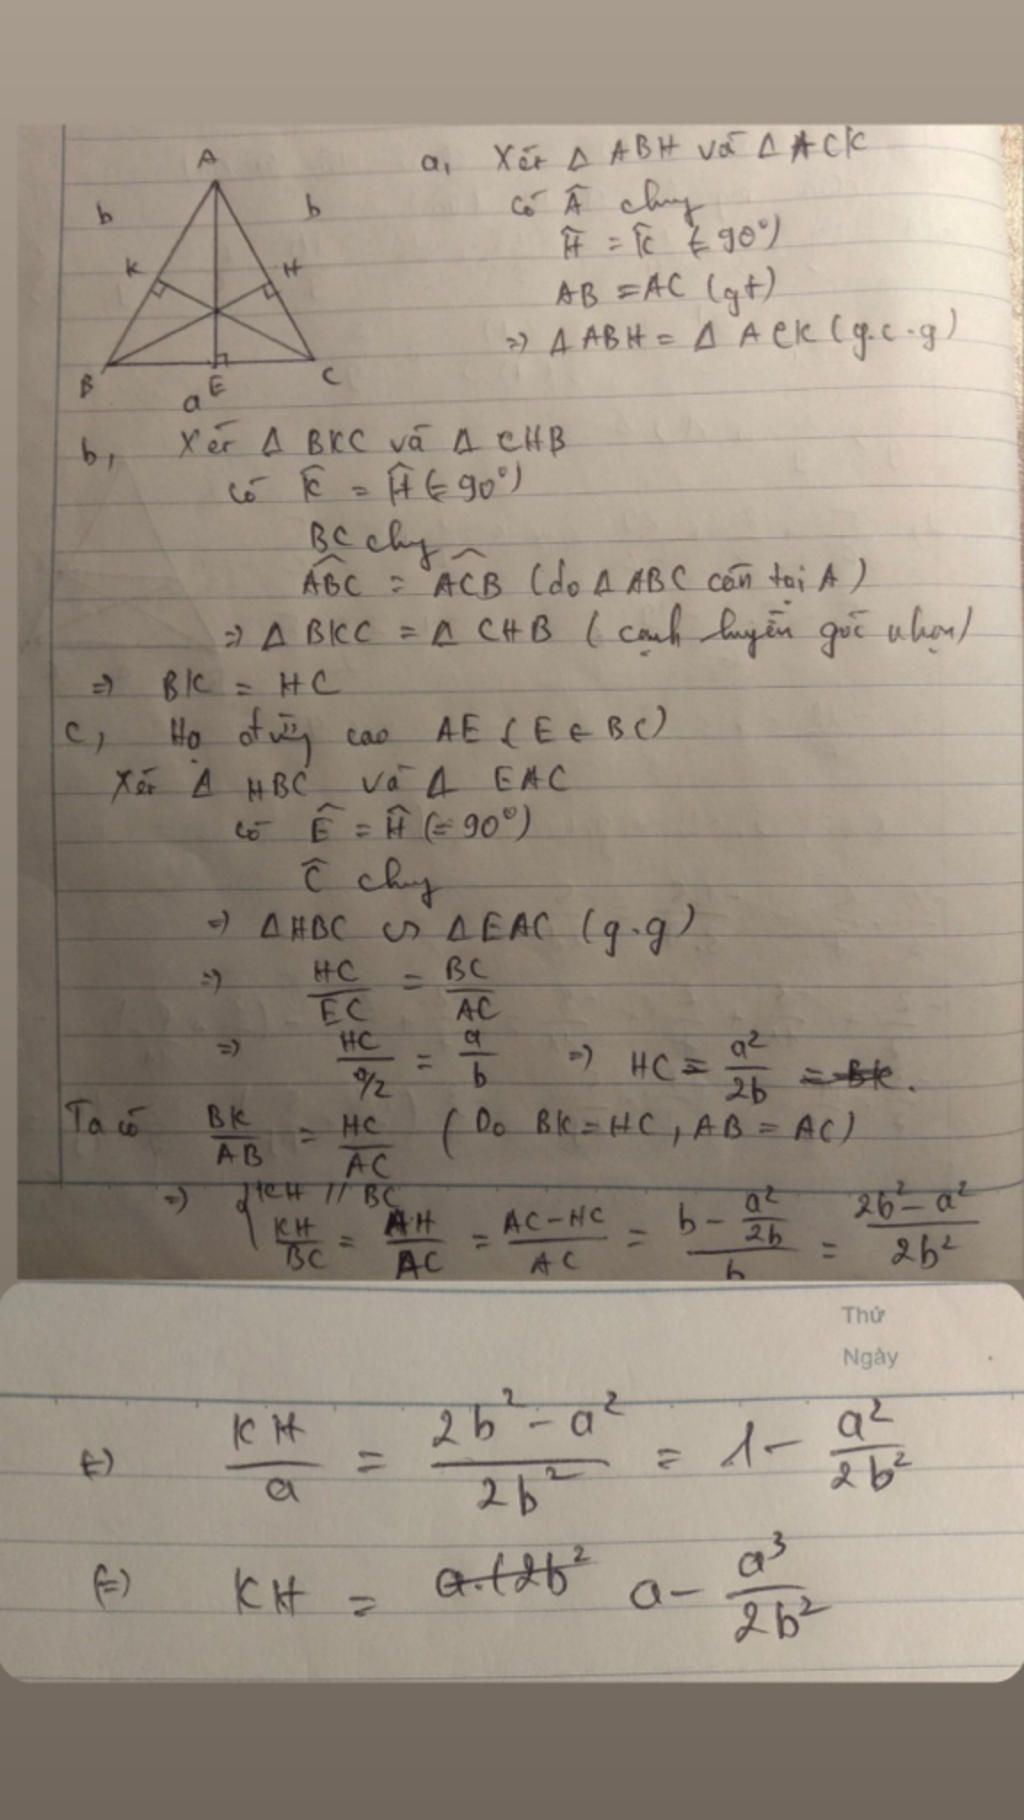 A
b b
K H
B E C
a
a, Xét Δ ABH và Δ ACK
có Â chung
Ĥ = K̂ (= 90°)
AB = AC (gt)
=> Δ ABH = Δ ACK (g.c.g)
b, Xét Δ BKC và Δ CHB
có K̂ = Ĥ (= 90°)
BC chung
\widehat{ABC} = \widehat{ACB} (do Δ ABC cân tại A)
=> Δ BKC = Δ CHB (cạnh huyền góc nhọn)
=> BK = HC
c, Hạ đường cao AE (E ∈ BC)
Xét Δ HBC và Δ EAC
có Ê = Ĥ (= 90°)
Ĉ chung
=> ΔHBC ∽ ΔEAC (g.g)
=> HC/EC = BC/AC
=> HC/(a/2) = a/b => HC = a²/2b = BK.
Ta có BK/AB = HC/AC (Do BK = HC, AB = AC)
=> { KH // BC
KH/BC = AH/AC = (AC-HC)/AC = (b - a²/2b)/b = (2b² - a²)/2b²
Thứ
Ngày
(=) KH/a = (2b² - a²)/2b² = 1 - a²/2b²
(=) KH = a.(2b² a - a³/2b²